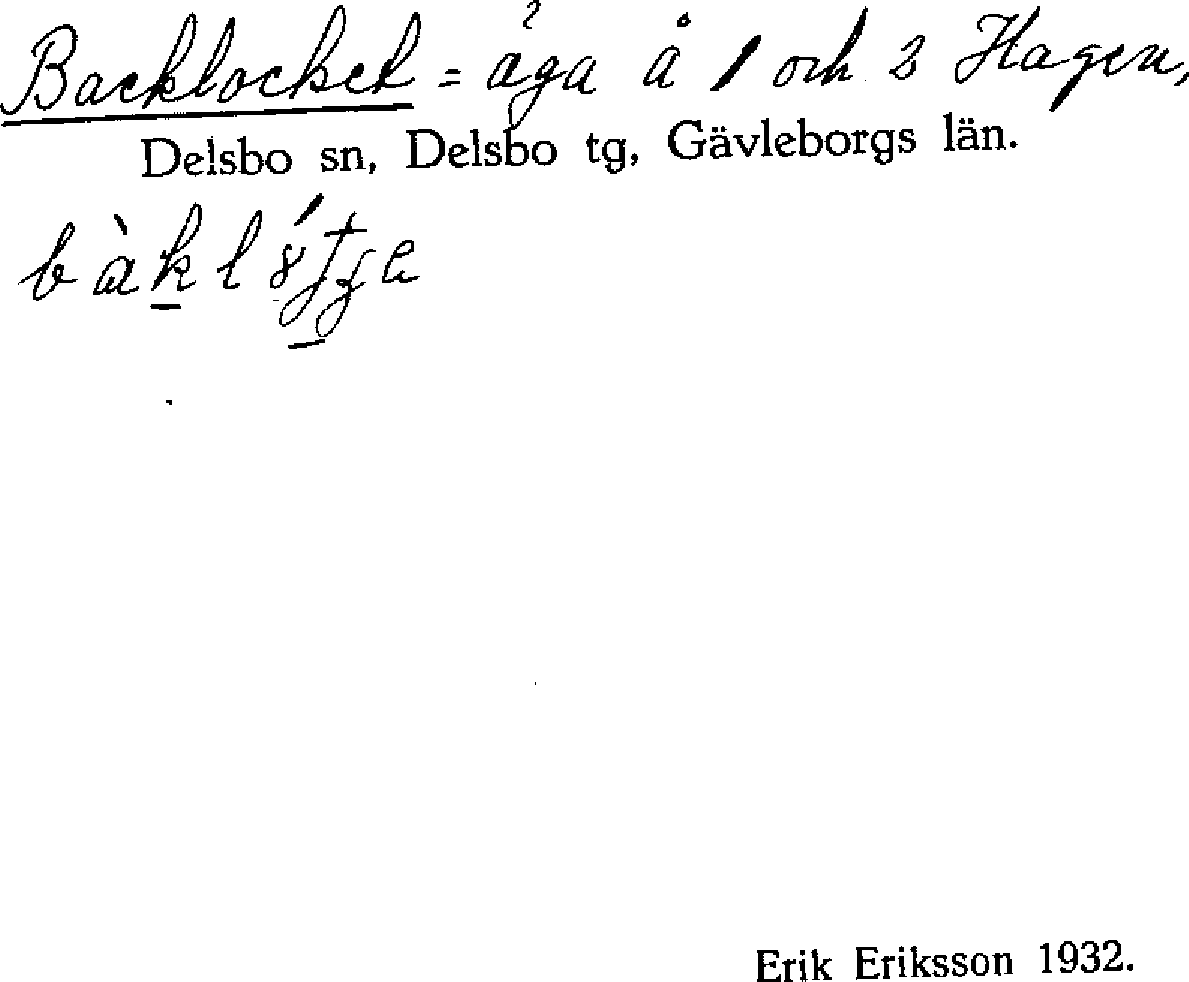 Backlocket = äga å 1 och 2 Hagen,
Delsbo sn, Delsbo tg, Gävleborgs län.
Erik Eriksson 1932.